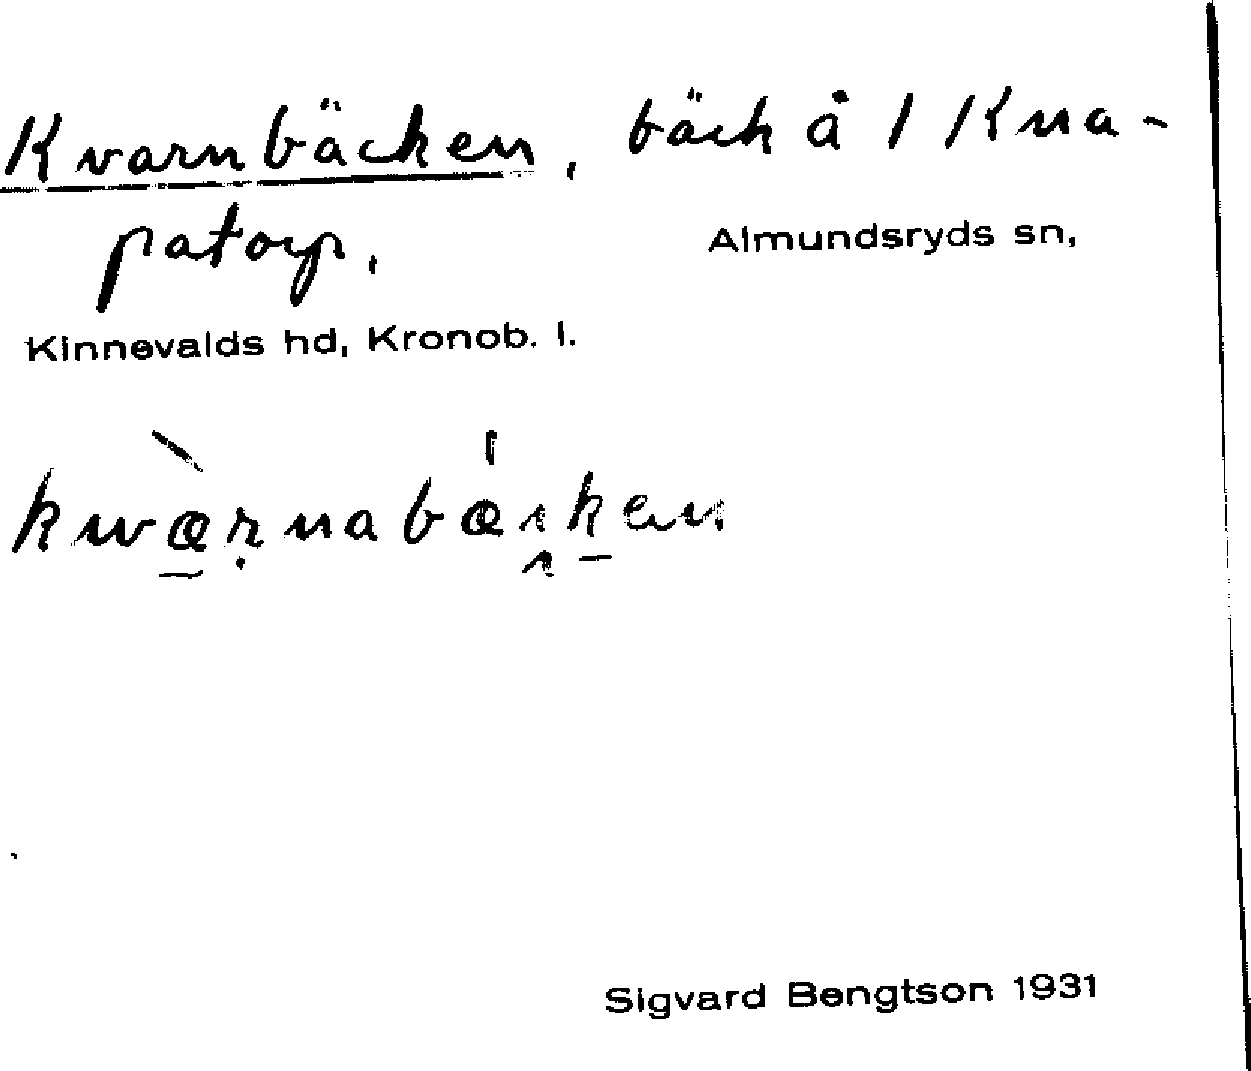 Kvarnbäcken, bäck å 1 Kna-
patorp,
Almundsryds sn,
Kinnevalds hd, Kronob. l.
Sigvard Bengtson 1931